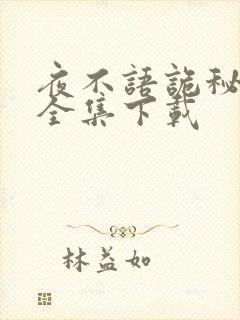 夜不語詭秘
全集下載
林益如